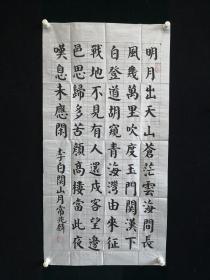 明月出天山蒼茫雲海間長
風幾萬里吹度玉門關漢下
白登道胡窺青海灣由來征
戰地不見有人還戍客望邊
邑思歸多苦顏高樓當此夜
嘆息未應閑
李白關山月